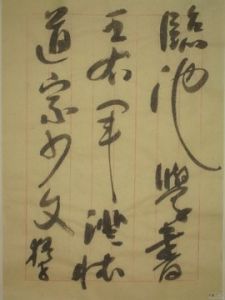 臨池學書
王右軍澄懷
道宗少文